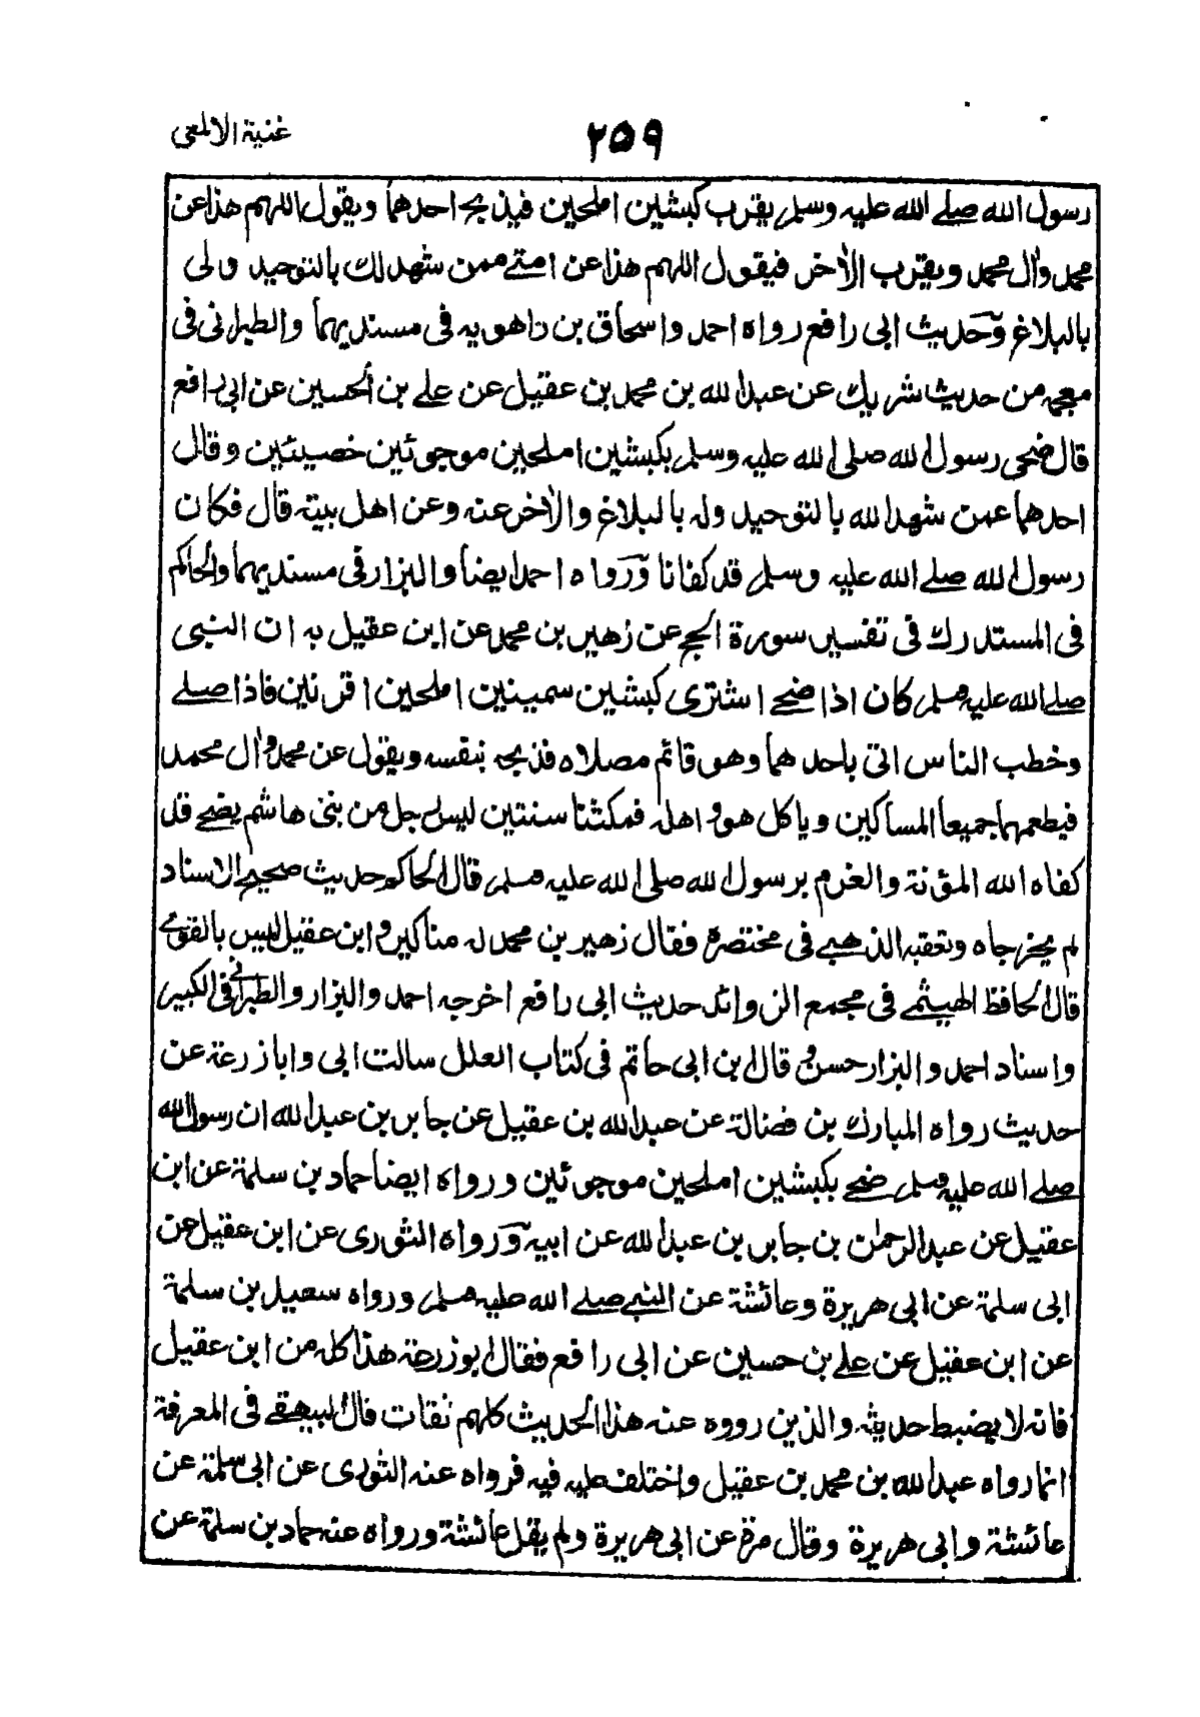 غنية الالمعي
٢٥٩
رسول الله صلے الله عليه وسلم يقرب كبشين املحين فيذبح احدهما ويقول اللهم هذا عن
محمد وآل محمد ويقرب الآخر فيقول اللهم هذا عن امتے ممن شهد لك بالتوحيد ولى
بالبلاغ وحديث ابى رافع رواه احمد واسحاق بن راهويه فى مسنديهما والطبرانى فى
معجمه من حديث شريك عن عبد الله بن محمد بن عقيل عن علے بن الحسين عن ابى رافع
قال ضحى رسول الله صلى الله عليه وسلم بكبشين املحين موجوئين خصيين وقال
احدهما عمن شهد الله بالتوحيد وله بالبلاغ والآخر عنه وعن اهل بيته قال فكان
رسول الله صلے الله عليه وسلم قد كفانا ورواه احمد ايضا والبزار فى مسنديهما والحاكم
فى المستدرك فى تفسير سورة الحج عن زهير بن محمد عن ابن عقيل به ان النبى
صلے الله عليه وسلم كان اذا ضحے اشترى كبشين سمينين املحين اقرنين فاذا صلے
وخطب الناس اتى باحدهما وهو قائم مصلاه فذبحه بنفسه ويقول عن محمد وآل محمد
فيطعمهما جميعا المساكين وياكل هو واهله فمكثنا سنتين ليس لرجل من بنى هاشم يضحے قد
كفاه الله المؤنة والغرم برسول الله صلى الله عليه وسلم قال الحاكم حديث صحيح الاسناد
لم يخرجاه وتعقبه الذهبے فى مختصره فقال زهير بن محمد له مناكير وابن عقيل ليس بالقوے
قال الحافظ الهيثمے فى مجمع الزوائد حديث ابى رافع اخرجه احمد والبزار والطبرانے فى الكبير
واسناد احمد والبزار حسن وقال ابن ابى حاتم فى كتاب العلل سالت ابى وابا زرعة عن
حديث رواه المبارك بن فضالة عن عبد الله بن عقيل عن جابر بن عبد الله ان رسول الله
صلے الله عليه وسلم ضحے بكبشين املحين موجوئين ورواه ايضا حماد بن سلمة عن ابن
عقيل عن عبد الرحمٰن بن جابر بن عبد الله عن ابيه ورواه الثورى عن ابن عقيل عن
ابى سلمة عن ابى هريرة وعائشة عن النبے صلے الله عليه وسلم ورواه سعيد بن سلمة
عن ابن عقيل عن علے بن حسين عن ابى رافع فقال ابو زرعة هذا كله من ابن عقيل
فانه لا يضبط حديثه والذين رووه عنه هذا الحديث كلهم ثقات قال البيهقے فى المعرفة
انما رواه عبد الله بن محمد بن عقيل واختلف عليه فيه فرواه عنه الثورى عن ابى سلمة عن
عائشة وابى هريرة وقال مرة عن ابى هريرة ولم يقل عائشة ورواه عنه حماد بن سلمة عن